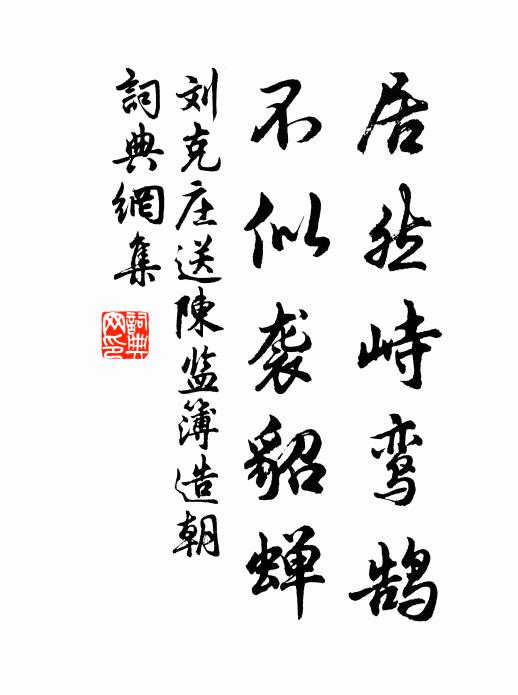 居然峙鸾鹄
不似袭貂蝉
刘克庄送陳监簿造朝
詞典網集
詞典网印